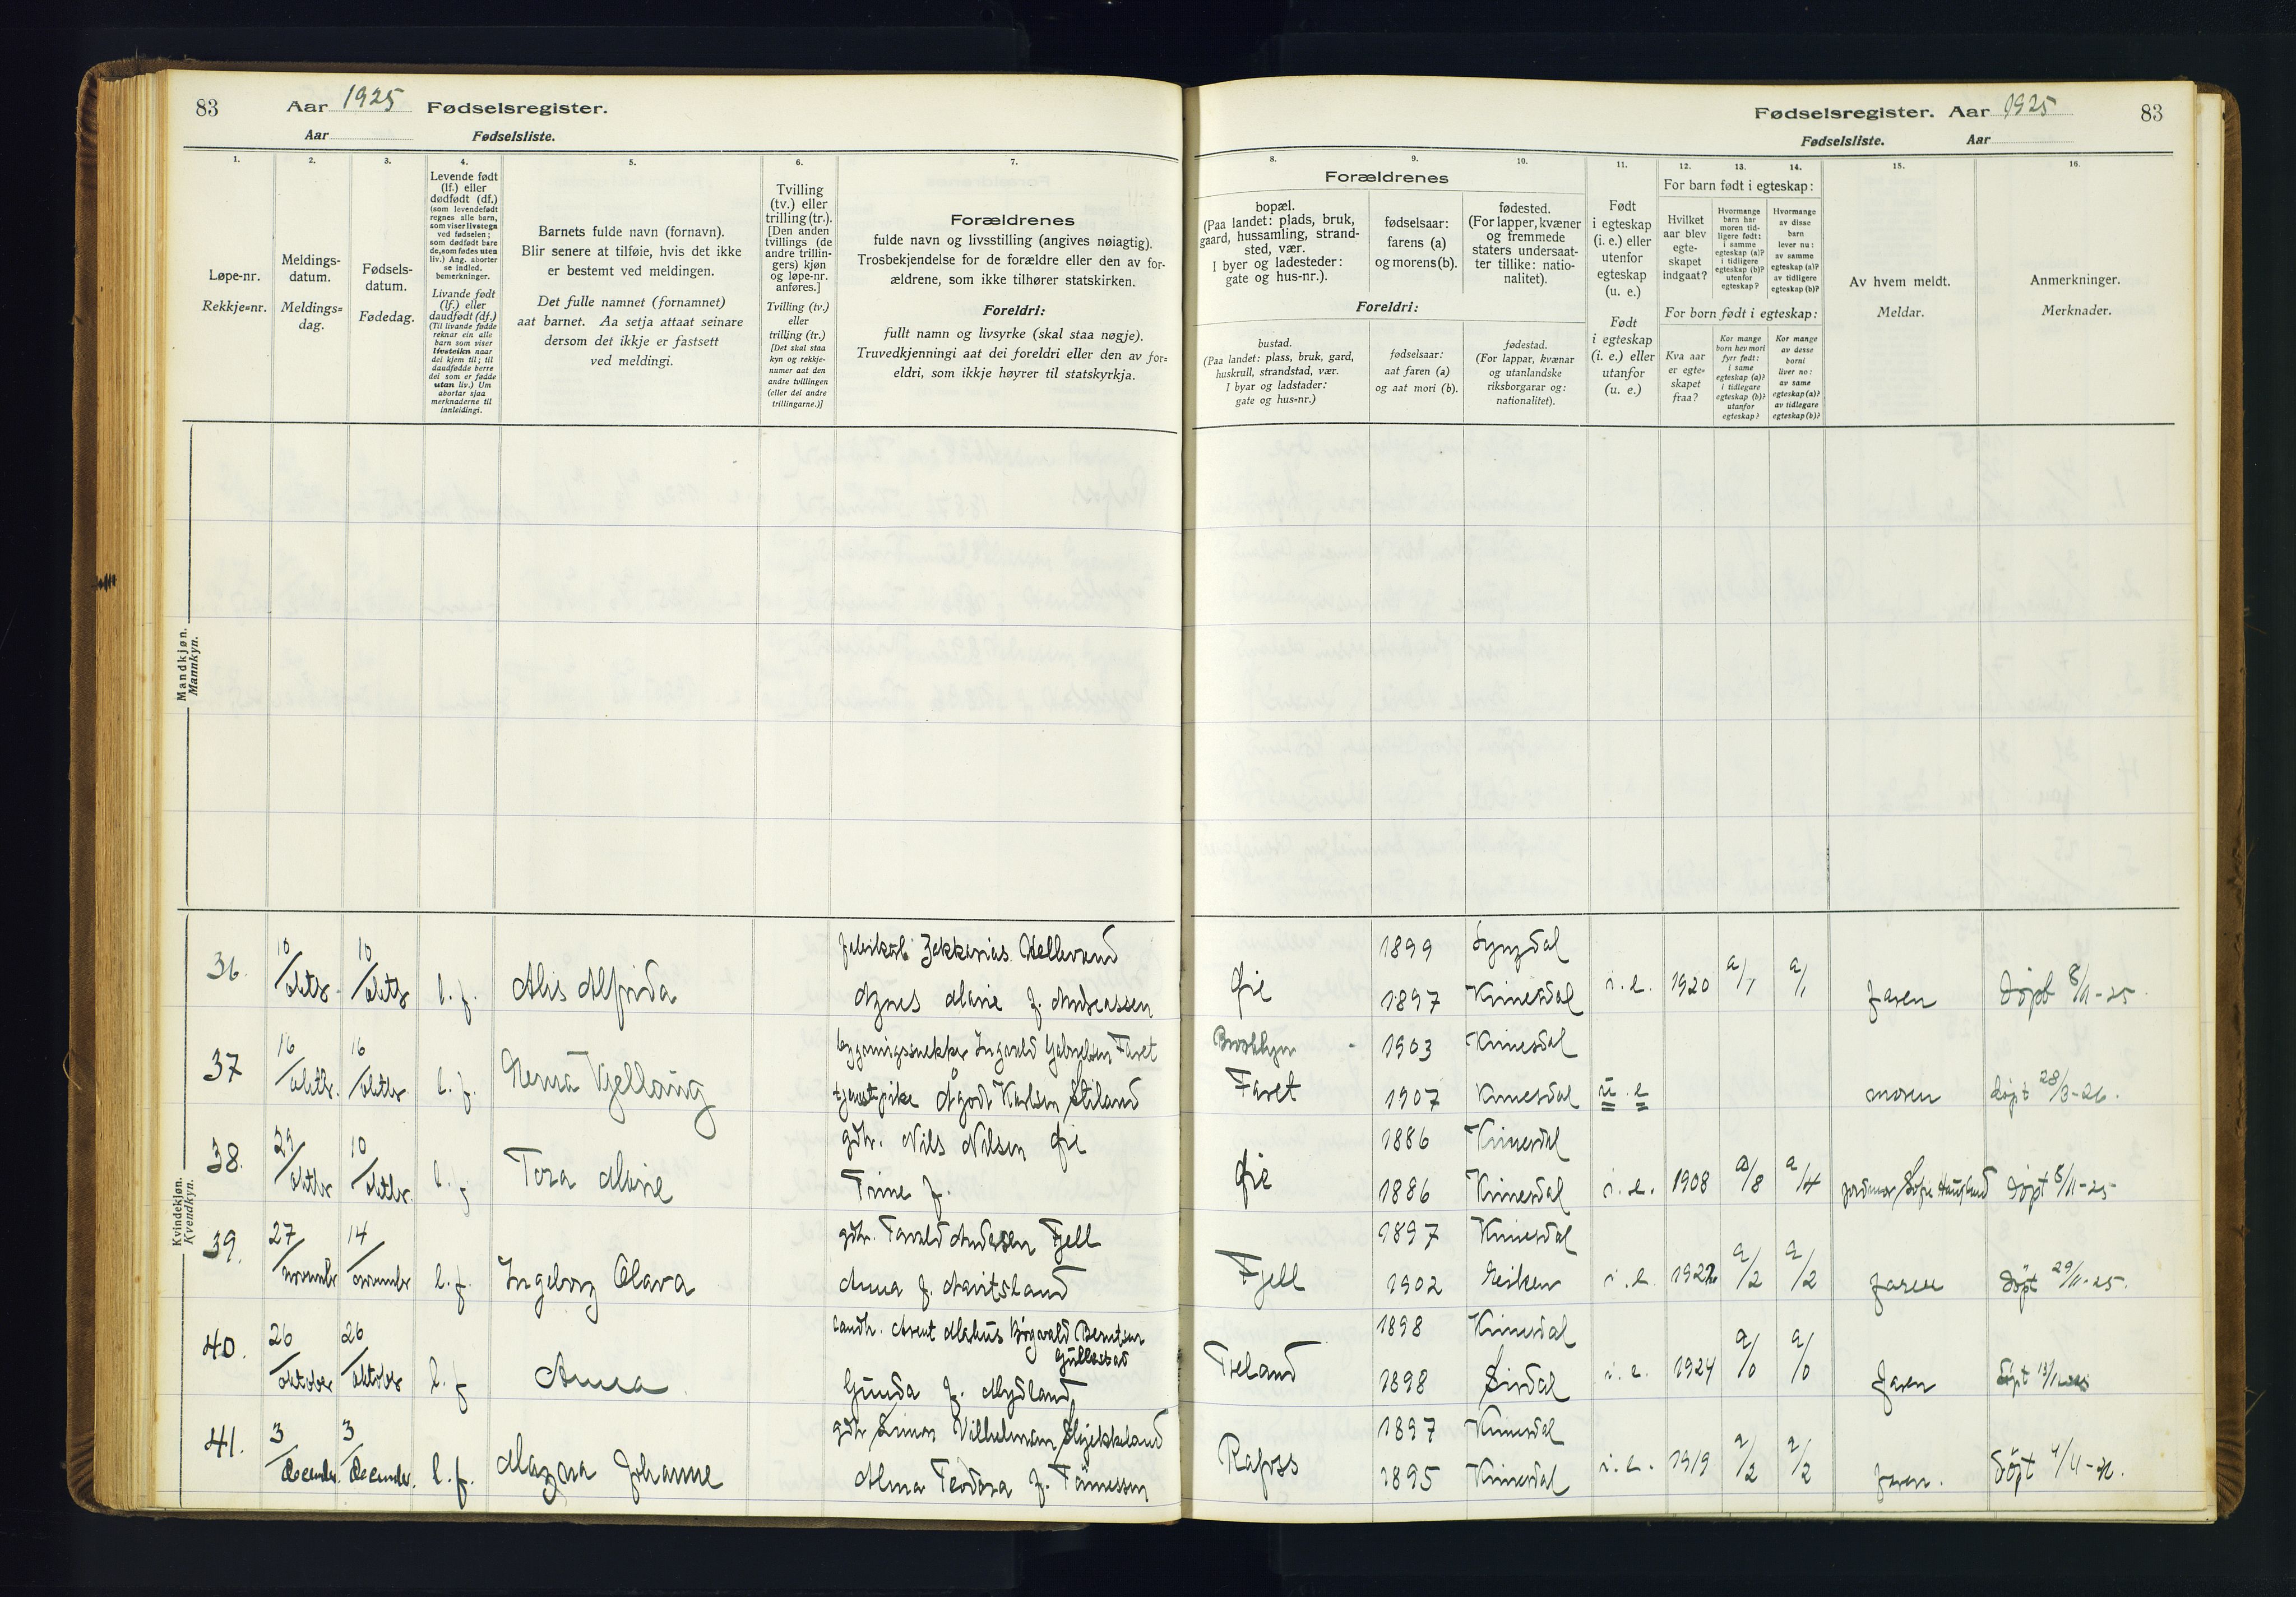 83 Aar 1925 Fødselsregister.
Aar Fødselsliste.
1. 2. 3. 4. 5. 6. 7.
Løpe-nr.
Rekkje=nr.
Meldings-
datum.
Meldings=
dag.
Fødsels-
datum.
Fødedag.
Levende født
(lf.) eller
dødfødt (df.)
(som levendefødt
regnes alle barn,
som viser livstegn
ved fødselen;
som dødfødt bare
de, som fødes uten
liv.) Ang. aborter
se indled.
bemerkninger.
Livande født
(lf.) eller
daudfødt (df.)
(Til livande fødde
reknar ein alle
barn som viser
livsteikn naar
dei kjem til; til
daudfødde berre
dei som er fødde
utan liv.) Um
abortar sjaa
merknaderne til
innleidingi.
Barnets fulde navn (fornavn).
Blir senere at tilføie, hvis det ikke
er bestemt ved meldingen.
Det fulle namnet (fornamnet)
aat barnet. Aa setja attaat seinare
dersom det ikkje er fastsett
ved meldingi.
Tvilling
(tv.) eller
trilling (tr.).
[Den anden
tvillings (de
andre trillin-
gers) kjøn
og løpe-nr.
anføres.]
Tvilling (tv.)
eller
trilling (tr.)
[Det skal staa
kyn og rekkje-
numer aat den
andre tvillingen
(eller dei andre
trillingarne.)]
Forældrenes
fulde navn og livsstilling (angives nøiagtig).
Trosbekjendelse for de forældre eller den av for-
ældrene, som ikke tilhører statskirken.
Foreldri:
fullt namn og livsyrke (skal staa nøgje).
Truvedkjenningi aat dei foreldri eller den av for=
eldri, som ikkje høyrer til statskyrkja.
Fødselsregister. Aar 1925 83
Fødselsliste. Aar
8. 9. 10. 11. 12. 13. 14. 15. 16.
Forældrenes
bopæl.
(Paa landet: plads, bruk,
gaard, hussamling, strand-
sted, vær.
I byer og ladesteder:
gate og hus-nr.).
fødselsaar:
farens (a)
og morens (b).
fødested.
(For lapper, kvæner
og fremmede
staters undersaat-
ter tillike: natio-
nalitet).
Foreldri:
bustad.
(Paa landet: plass, bruk, gard,
huskrull, strandstad, vær.
I byar og ladstader:
gate og hus=nr.)
fødselsaar:
aat faren (a)
og aat mori (b).
fødestad.
(For lappar, kvænar
og utanlandske
riksborgarar og:
nationalitet).
Født
i egteskap
(i. e.) eller
utenfor
egteskap
(u. e.)
Født
i egteskap
(i. e.) eller
utanfor
(u. e.)
For barn født i egteskap:
Hvilket
aar blev
egte-
skapet
indgaat?
Hvormange
barn har
moren tid-
ligere født:
i samme
egteskap (a)?
i tidligere
egteskap (b)?
utenfor
egteskap?
Hvormange
av disse
barn
lever nu:
av samme
egteskap (a)?
av tidligere
egteskap (b)?
For born født i egteskap:
Kva aar
er egte=
skapet
fraa?
Kor mange
born hev mori
fyrr født:
i same
egteskap (a)?
i tidlegare
egteskap (b)?
utanfor
egteskap?
Kor mange
av desse
borni
liver no:
av same
egteskap (a)?
av tidlegare
egteskap (b)?
Av hvem meldt.
Meldar.
Anmerkninger.
Merknader.
Mandkjøn.
Mannkyn.
Kvindekjøn.
Kvendkyn.
36. 10/oktbr. 10/oktbr l. f. Alis Alfrida
Zekkarias Hellevand
Agnes Marie f. Andreassen
Øie 1899 Lyngdal
1897 Kvinesdal i. e. 1920 a/1 a/1 faren døpt 8/11-25.
37 16/oktbr. 16/oktbr l. f.
bygningssnekker Ingvald Gabrielsen Faret
tjenestepike Ågodt Karlsen Stiland
Brooklyn 1903 Kvinesdal
Faret 1907 Kvinesdal u. e moren døpt 28/3-26.
38. 29/oktbr 10/oktbr. l. f Tora Marie
gdbr. Nils Nilsen Øie
Trine f.
Øie 1886 Kvinesdal
1886 Kvinesdal i. e. 1908 a/8 a/4 jordmor Sofie Haugland døpt 8/11-25
39. 27/november 14/november l. f. Ingeborg Olava
gdbr. Tarald Andersen Fjell
Anna f. Mavitsland
Fjell 1897 Kvinesdal
1902 Eiken i. e. 1922 a/2 a/2 faren døpt 29/11-25.
40. 26/oktober 26/oktober l. f Anna
landh. Arent Markus Bergvald Berntsen
Gullestad
Gunda f. Mydland
Træland 1898 Kvinesdal
1898 Sirdal i. e. 1924 a/0 a/0 faren døpt
41. 3/december. 3/december. l. f. Magna Johanne
gdbr Simon Vilhelmsen Slajekkeland
Alma Teodora f. Tønnessen
Rafoss 1897 Kvinesdal
1895 Kvinesdal i. e. 1919 a/2 a/2 faren. døpt 4/4-26.